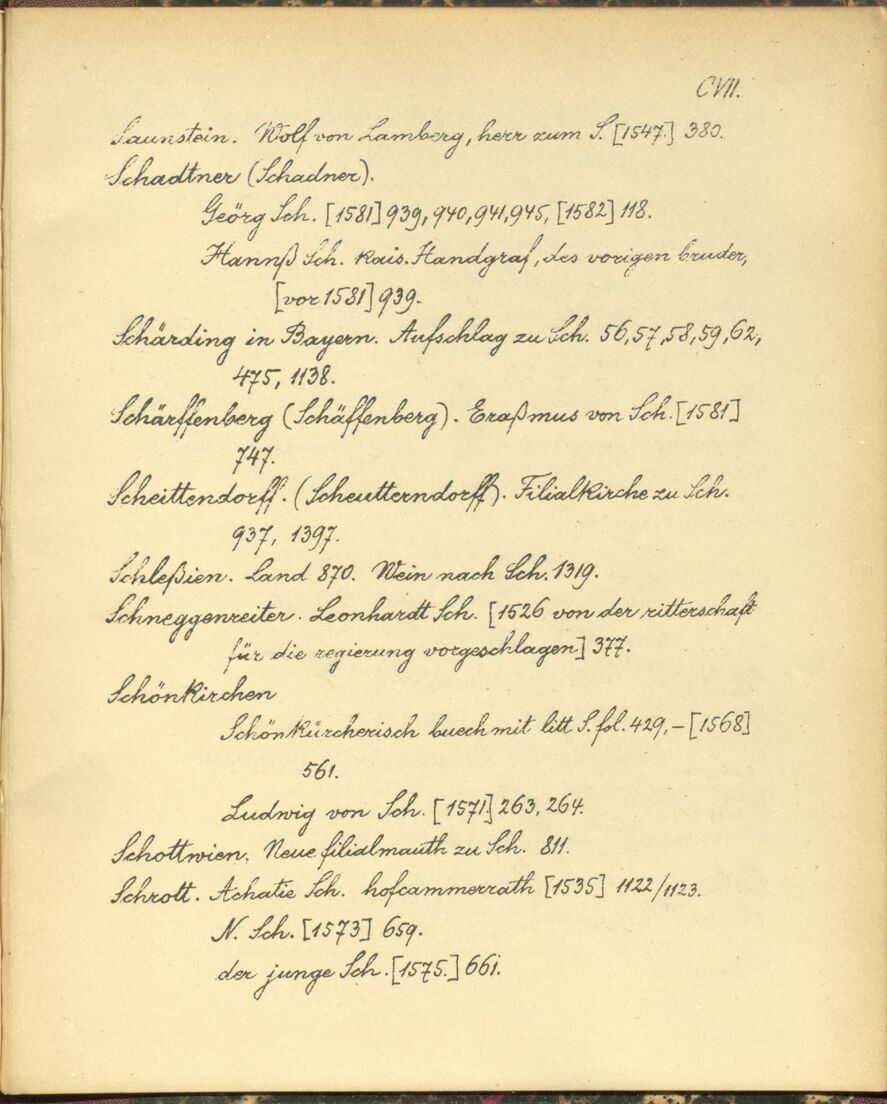 CVII.
Saunstein. Wolf von Lamberg, herr zum S. [1547.] 380.
Schadtner (Schadner).
Geörg Sch. [1581] 939, 940, 941, 945, [1582] 118.
Hannß Sch. kais. Handgraf, des vorigen bruder,
[vor 1581] 939.
Schärding in Bayern. Aufschlag zu Sch. 56, 57, 58, 59, 62,
475, 1138.
Schärffenberg (Schäffenberg). Eraßmus von Sch. [1581]
747.
Scheittendorff. (Scheutterndorff). Filialkirche zu Sch.
937, 1397.
Schleßien. Land 870. Wein nach Sch. 1319.
Schneggenreiter. Leonhardt Sch. [1526 von der ritterschaft
für die regierung vorgeschlagen] 377.
Schönkirchen
Schönkürcherisch buech mit litt S. fol. 429, – [1568]
561.
Ludwig von Sch. [1571] 263, 264.
Schottwien. Neue filialmauth zu Sch. 811.
Schrott. Achatie Sch. hofcammerrath [1535] 1122/1123.
N. Sch. [1573] 659.
der junge Sch. [1575.] 661.